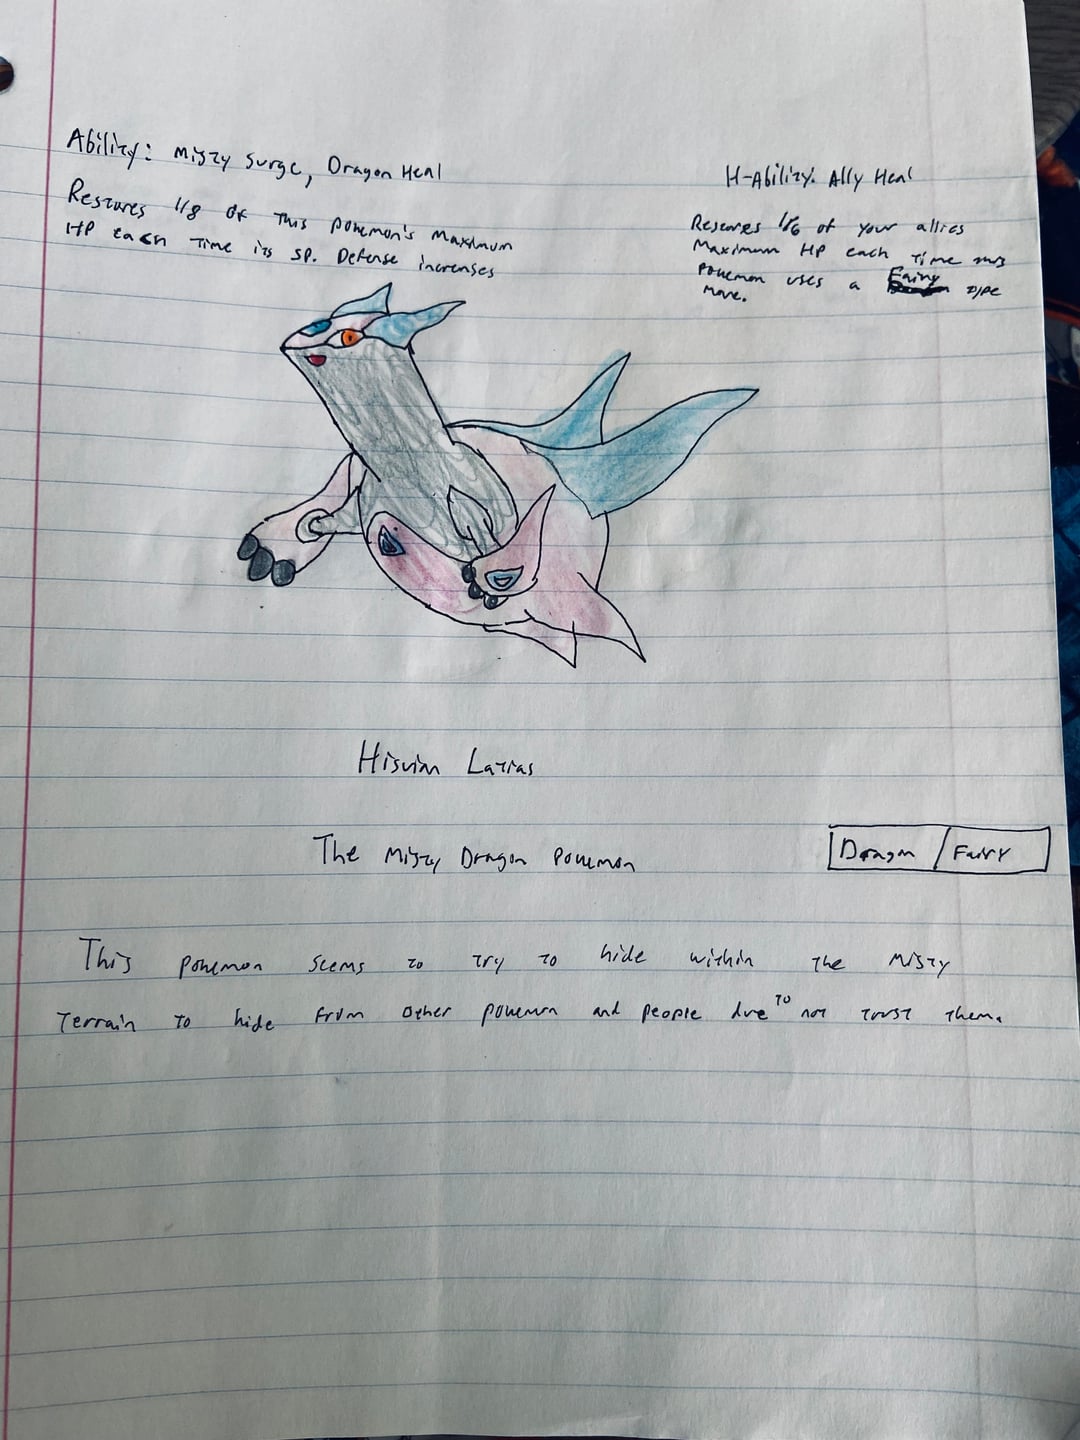 Ability: Misty Surge, Dragon Heal
Restores 1/8 of this Pokemon's Maximum
HP each Time its SP. Defense increases
H-Ability: Ally Heal
Restores 1/6 of your allies
Maximum HP each Time this
Pokemon uses a Fairy Type
Move.
Hisuian Latias
The Misty Dragon Pokemon
Dragon / Fairy
This Pokemon seems to try to hide within the Misty
Terrain to hide from other pokemon and people due to not trust them.